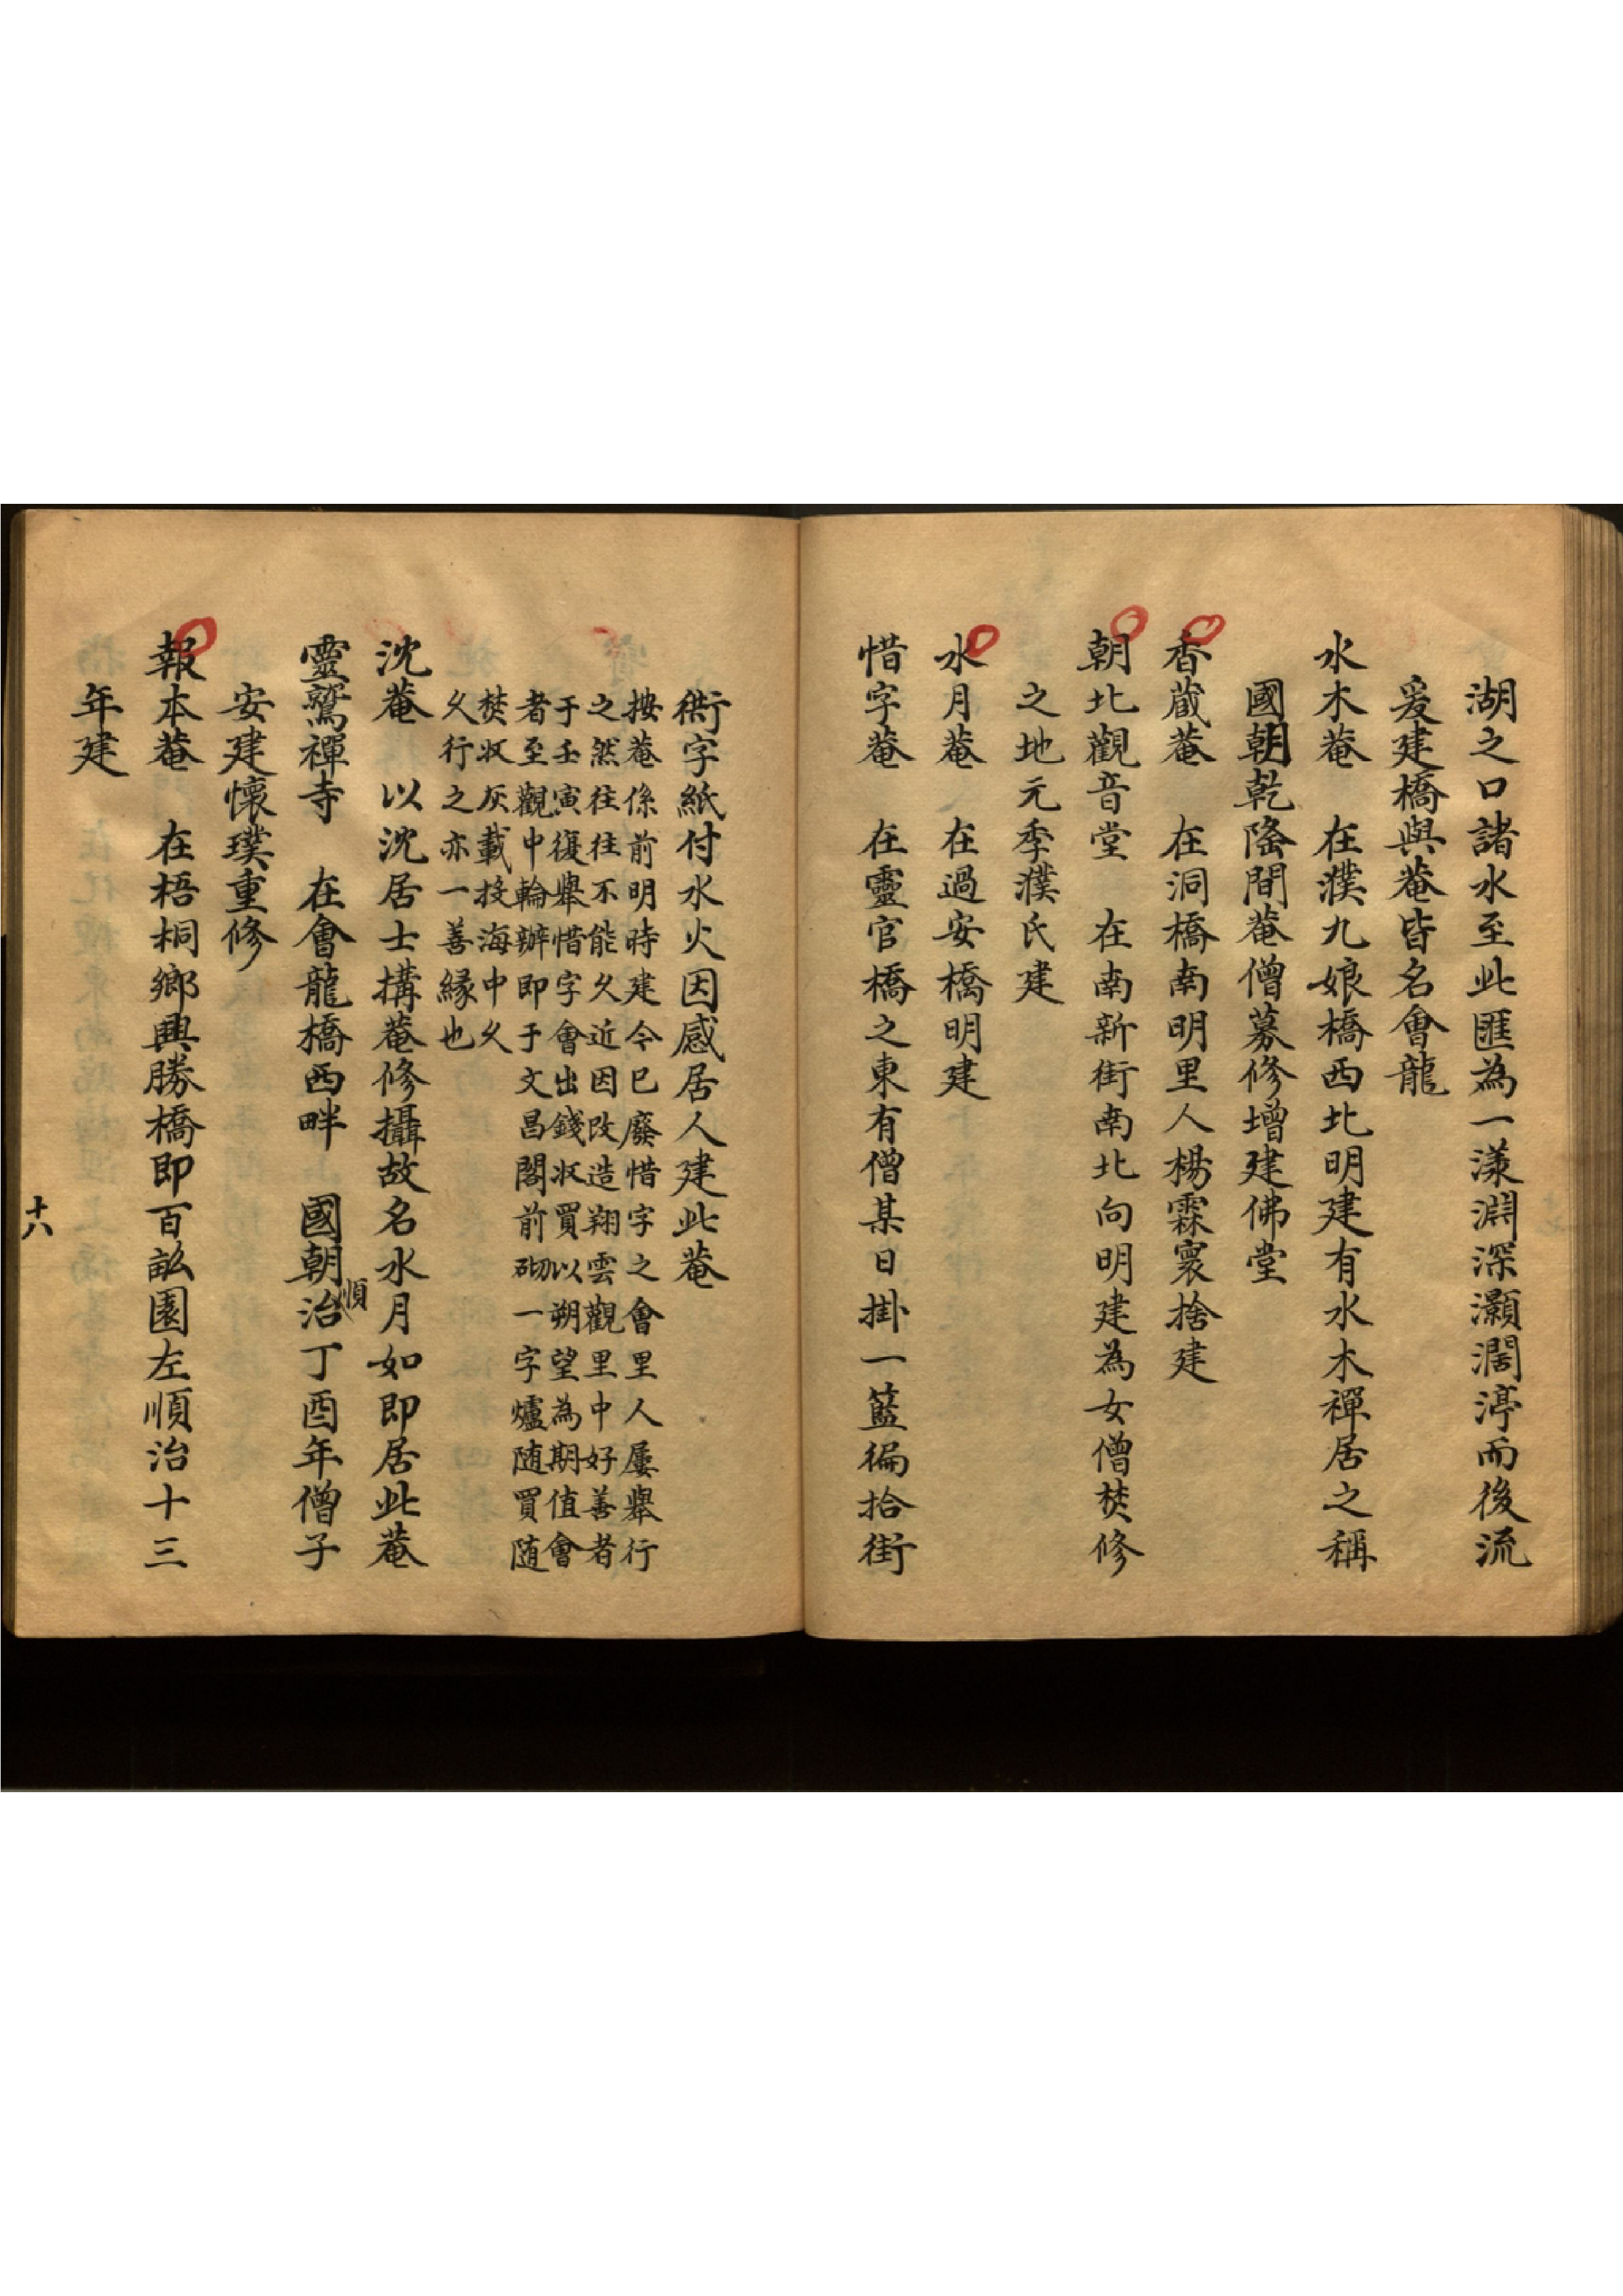 湖之口諸水至此匯為一漾淵深灝濶渟而後流
爰建橋與菴皆名會龍
水木菴　在濮九娘橋西北明建有水木禪居之稱
國朝乾隆間菴僧募修增建佛堂
香蔵菴　在洞橋南明里人楊霖寰捨建
朝北觀音堂　在南新街南北向明建為女僧焚修
之地元季濮氏建
水月菴　在過安橋明建
惜字菴　在靈官橋之東有僧某日掛一籃徧拾街
衖字紙付水火因感居人建此菴
按菴係前明時建今已廢惜字之會里人屢舉行
之然往往不能久近因改造翔雲觀里中好善者
于壬寅復舉惜字會出錢収買以朔望為期值會
者至觀中輪辦即于文昌閣前砌一字爐随買随
焚収灰載投海中久
久行之亦一善緣也
沈菴　以沈居士搆菴修攝故名水月如即居此菴
靈鷲禪寺　在會龍橋西畔　國朝順治丁酉年僧子
安建懷璞重修
報本菴　在梧桐鄉興勝橋即百畝園左順治十三
年建
十八